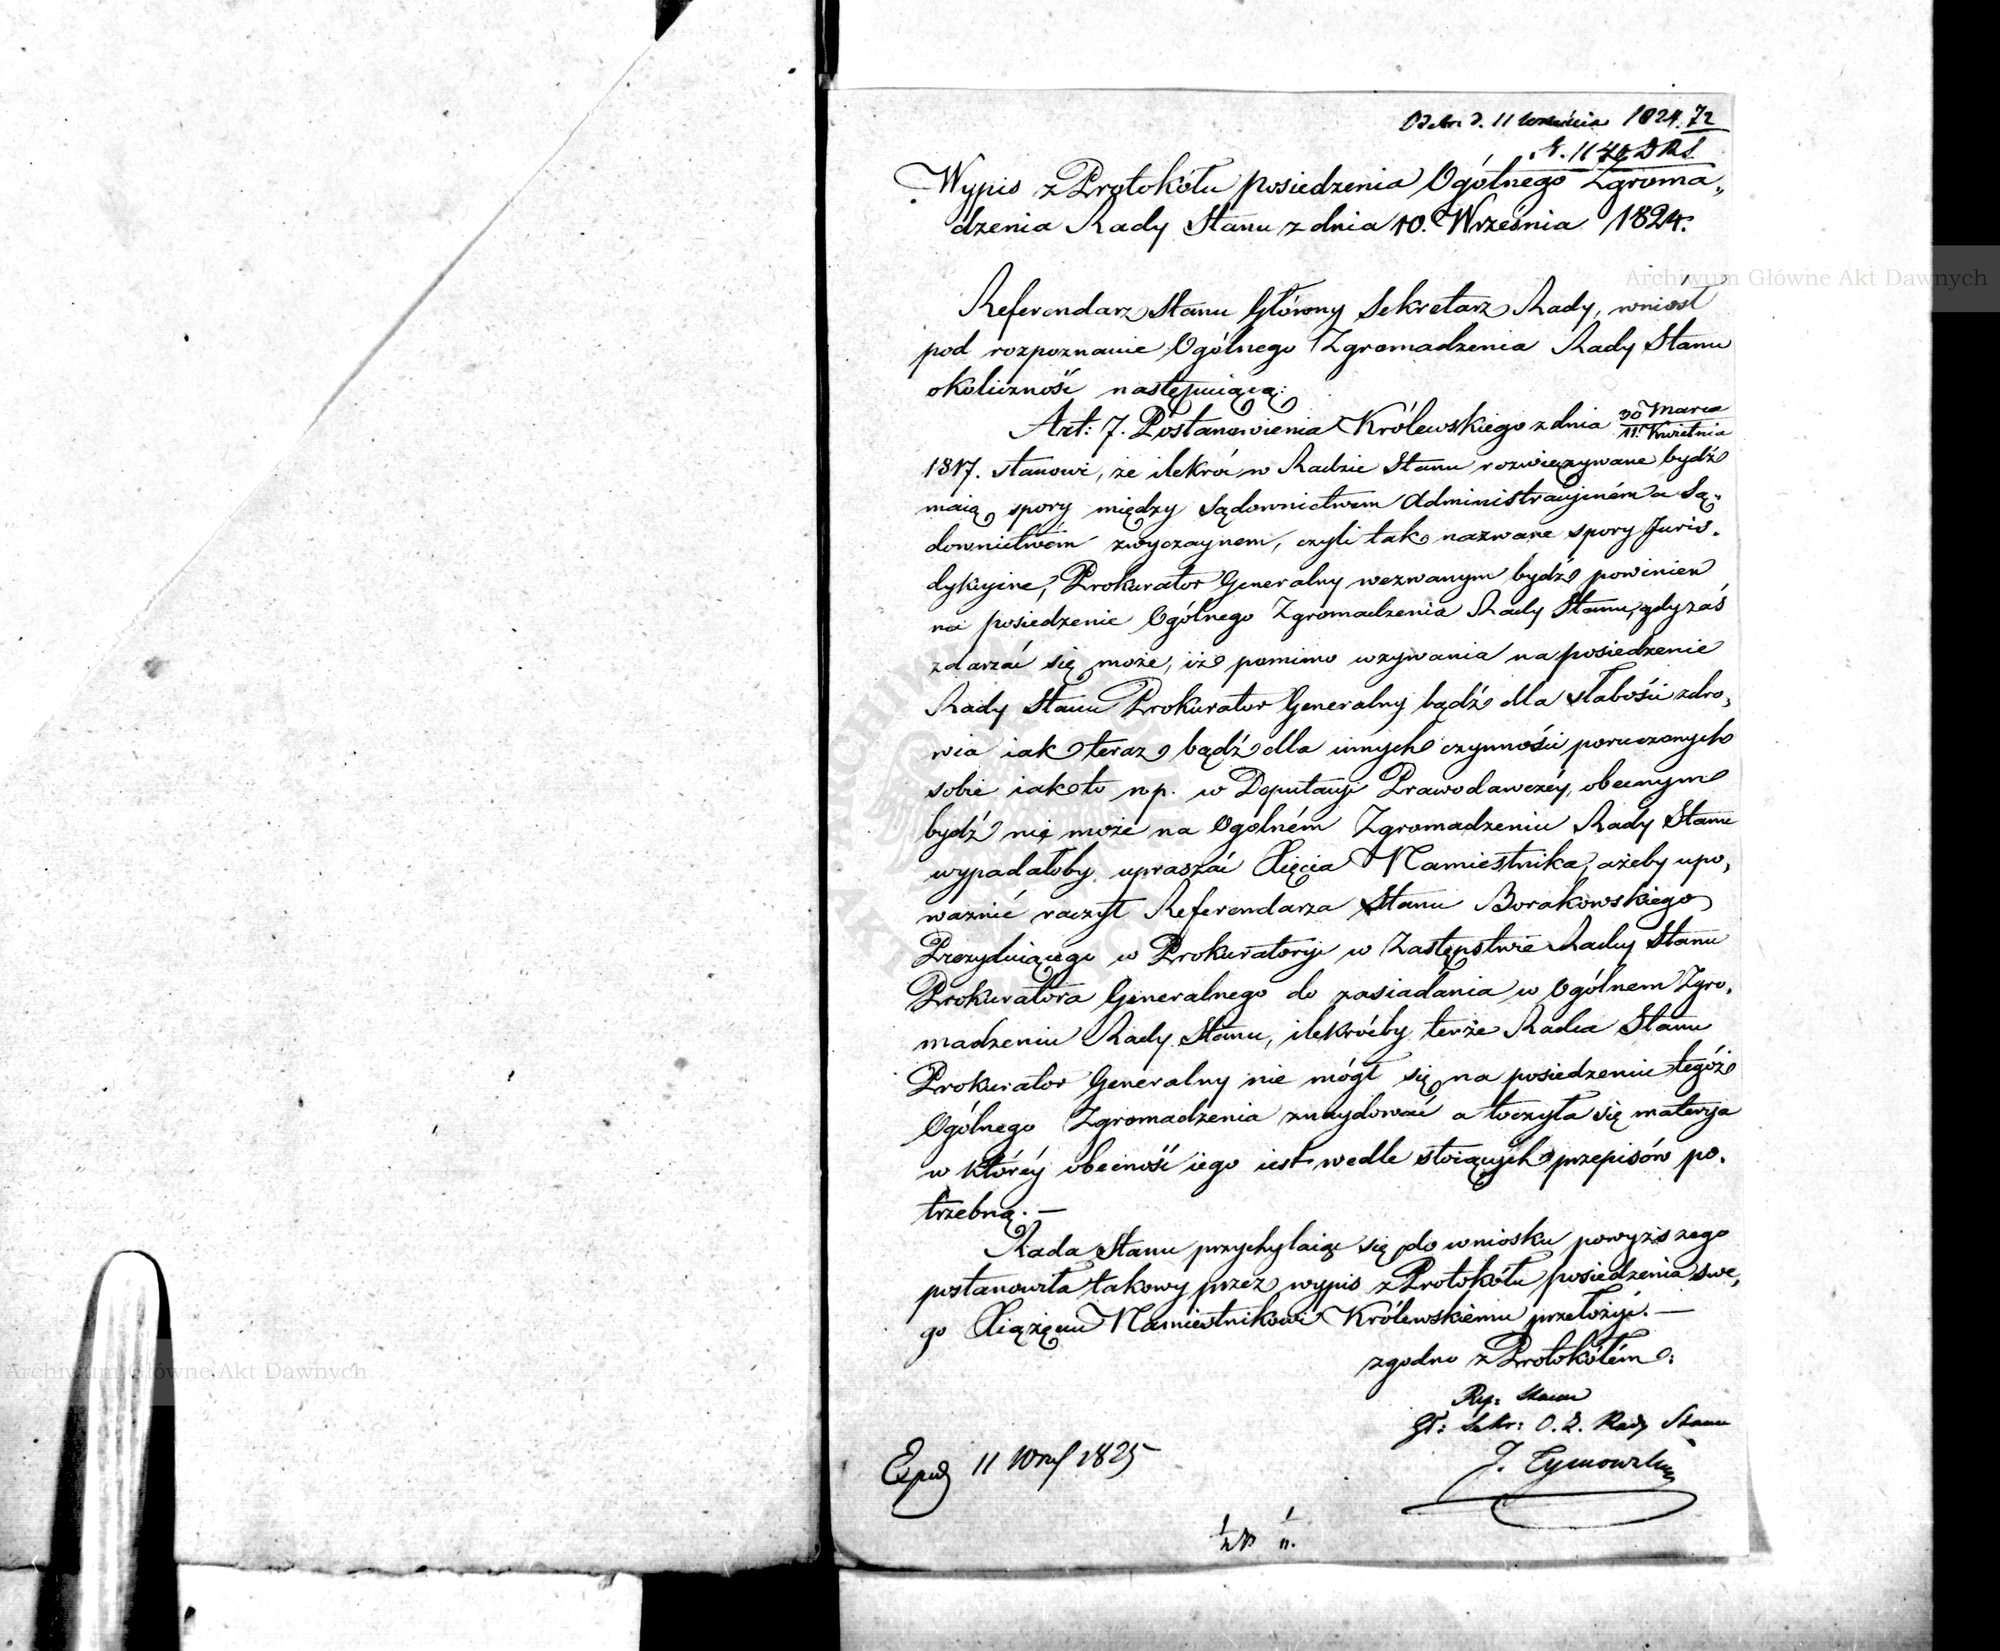 Odebr. d. 11 Września 1824. 72
N. 1170 DRS
Wypis z Protokółu posiedzenia Ogólnego Zgroma„
dzenia Rady Stanu z dnia 10. Września 1824.
Archiwum Główne Akt Dawnych
Referendarz Stanu Główny Sekretarz Rady, wniosł
pod rozpoznanie Ogólnego Zgromadzenia Rady Stanu
okoliczność następuiącą:
Art: 7. Postanowienia Królewskiego z dnia 30 Marca / 11. Kwietnia
1817. stanowi, że ilekroć w Radzie Stanu rozwięzywane bydź
maią spory między Sądownictwem Administracyiném a Są„
downictwém zwyczaynem, czyli tak nazwane spory Juris„
dykcyine, Prokurator Generalny wezwanym bydź powinien
na posiedzenie Ogólnego Zgromadzenia Rady Stanu, gdy zaś
zdarzać się może, iż pomimo wzywania na posiedzenie
Rady Stanu Prokurator Generalny bądź dla słabości zdro„
wia iak teraz bądź dla innych czynności poruczonych
sobie iako to np. w Deputacyi Prawodawczéy, obecnym
bydź nie może na Ogólném Zgromadzeniu Rady Stanu
wypadałoby upraszać Xięcia Namiestnika, ażeby upo„
ważnić raczył Referendarza Stanu Borakowskiego
Prezyduiącego w Prokuratoryi w Zastępstwie Radcy Stanu
Prokuratora Generalnego do zasiadania w Ogólnem Zgro„
madzeniu Rady Stanu, ilekroćby tenże Radca Stanu
Prokurator Generalny nie mógł się na posiedzeniu tegóż
Ogólnego Zgromadzenia znaydować a toczyła się materya
w któréy obecność iego iest wedle stoiących przepisów po„
trzebną. —
Rada Stanu przychylaiąc się do wniosku powyższego
postanowiła takowy przez wypis z Protokółu posiedzenia swe„
go Xiążęciu Namiestnikowi Królewskiemu przełożyć. —
zgodno z Protokółém:
Archiwum Główne Akt Dawnych
Ref: Stanu
Gł: Sekr: O. Z. Rady Stanu
J. Tymowski
Exped 11 Wrzes 1825